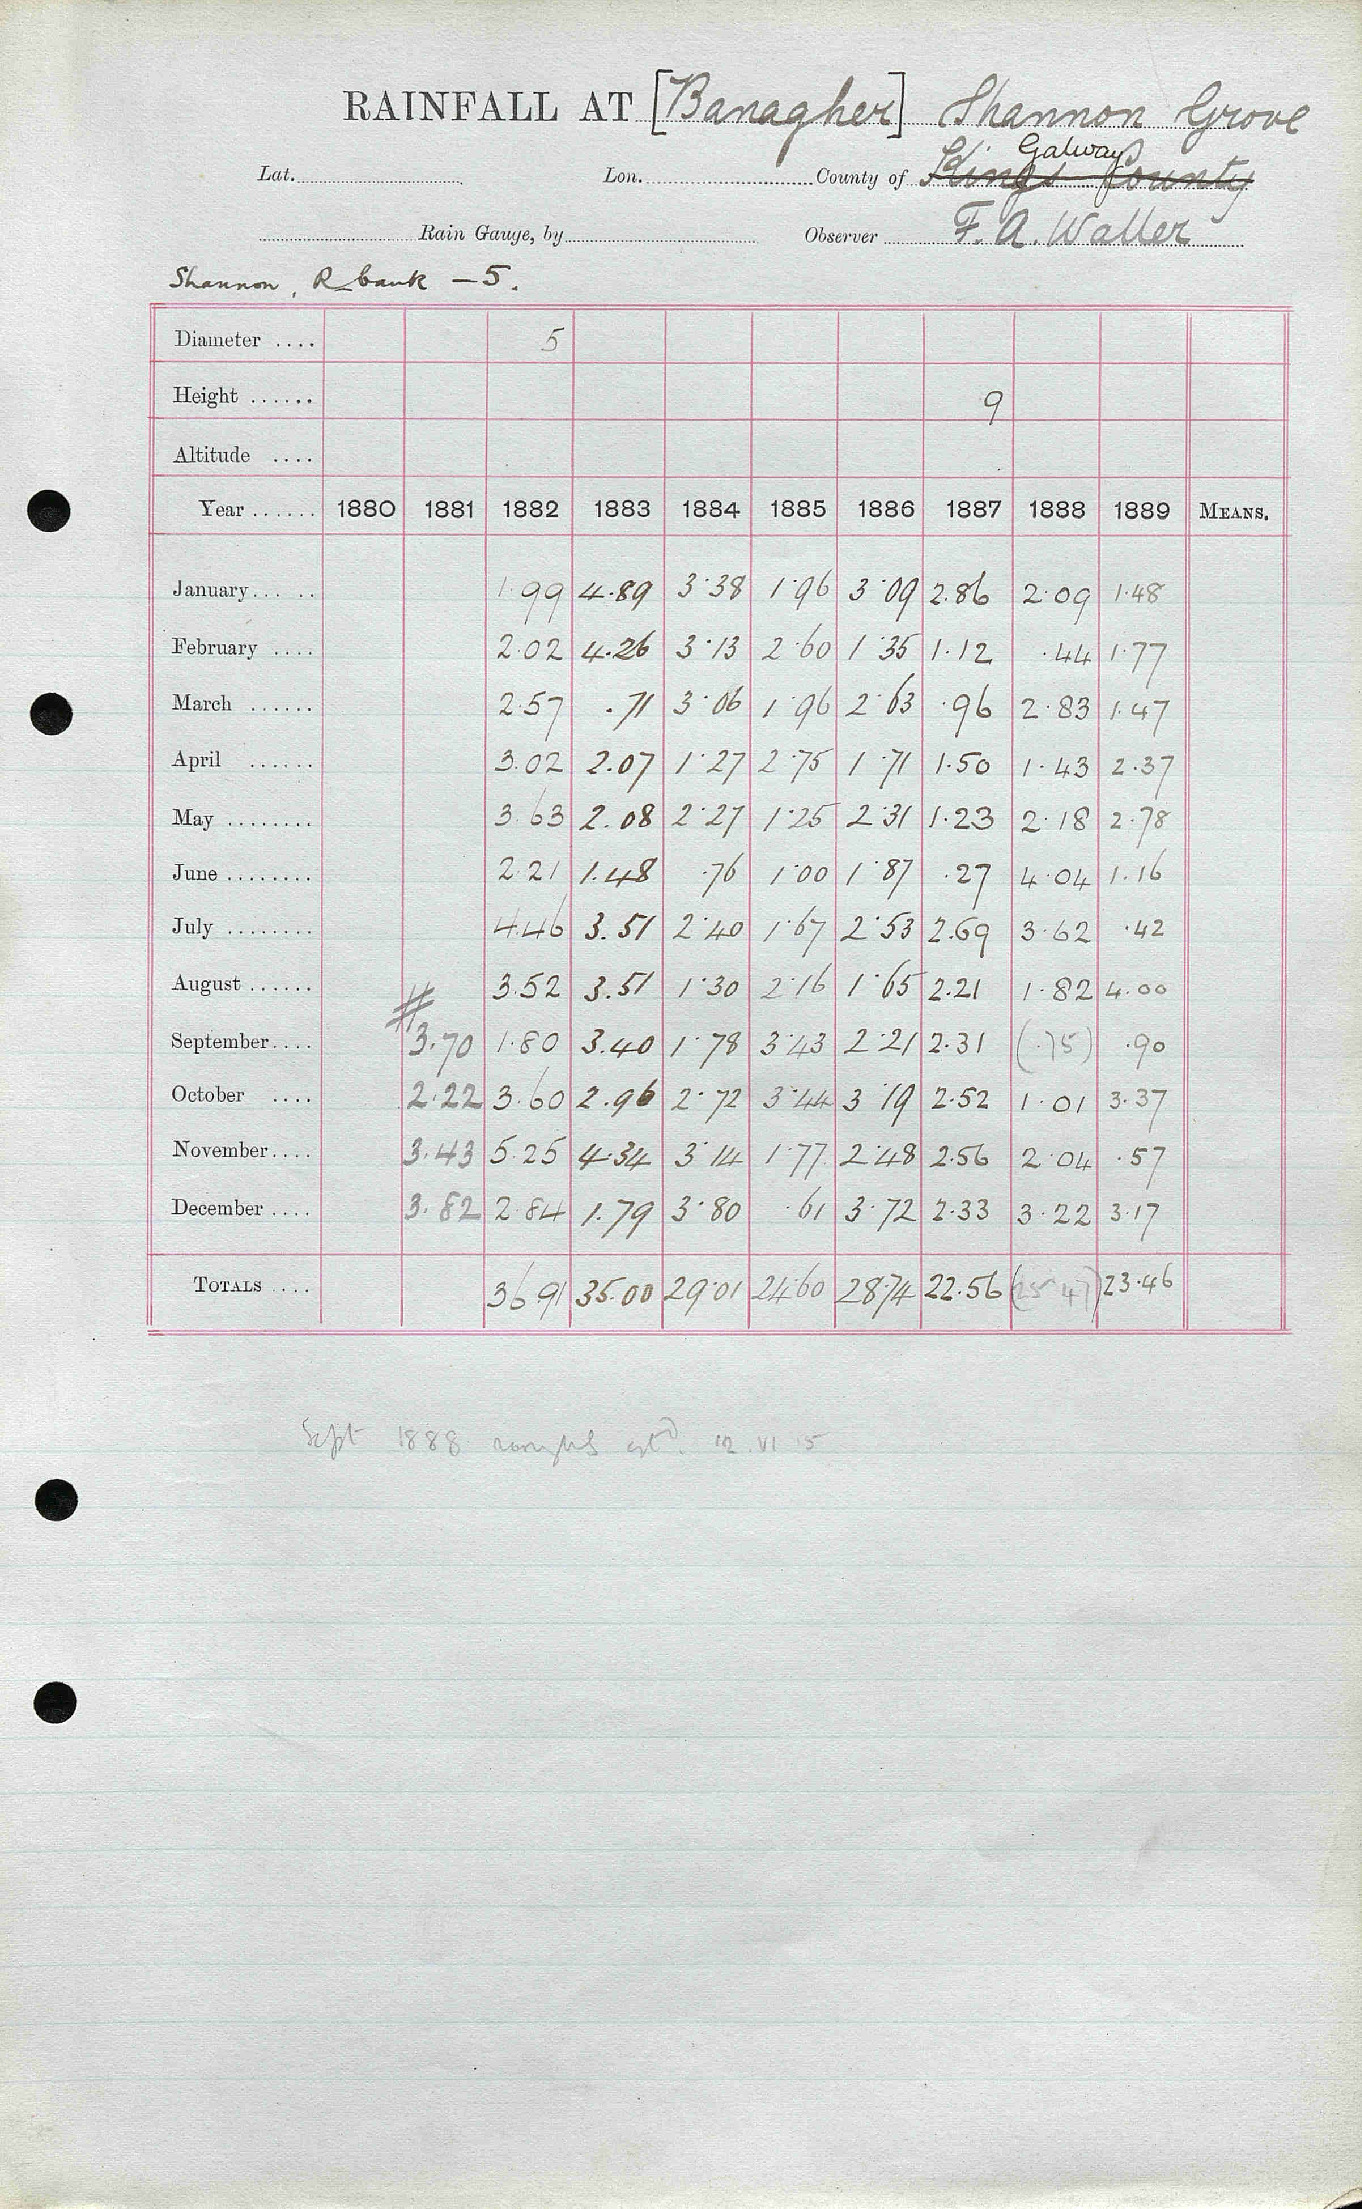 RAINFALL AT [Banagher] Shannon Grove
Galway
Lat. Lon. County of Kings County
Rain Gauge, by Observer F. A. Waller
Shannon, R bank — 5.
Diameter .... 5
Height ...... 9
Altitude ....
Year ...... 1880 1881 1882 1883 1884 1885 1886 1887 1888 1889 MEANS.
January... .. 1.99 4.89 3.38 1.96 3.09 2.86 2.09 1.48
February .... 2.02 4.26 3.13 2.60 1.35 1.12 .44 1.77
March ...... 2.57 .71 3.06 1.96 2.63 .96 2.83 1.47
April ...... 3.02 2.07 1.27 2.75 1.71 1.50 1.43 2.37
May ........ 3.63 2.08 2.27 1.25 2.31 1.23 2.18 2.78
June ........ 2.21 1.48 .76 1.00 1.87 .27 4.04 1.16
July ........ 4.46 3.51 2.40 1.67 2.53 2.69 3.62 .42
August ...... # 3.52 3.51 1.30 2.16 1.65 2.21 1.82 4.00
September.... 3.70 1.80 3.40 1.78 3.43 2.21 2.31 (.75) .90
October .... 2.22 3.60 2.96 2.72 3.44 3.19 2.52 1.01 3.37
November.... 3.43 5.25 4.34 3.14 1.77 2.48 2.56 2.04 .57
December .... 3.82 2.84 1.79 3.80 .61 3.72 2.33 3.22 3.17
TOTALS .... 36.91 35.00 29.01 24.60 28.74 22.56 (25.47) 23.46
Sept 1888 roughly estd. 12.VI 15